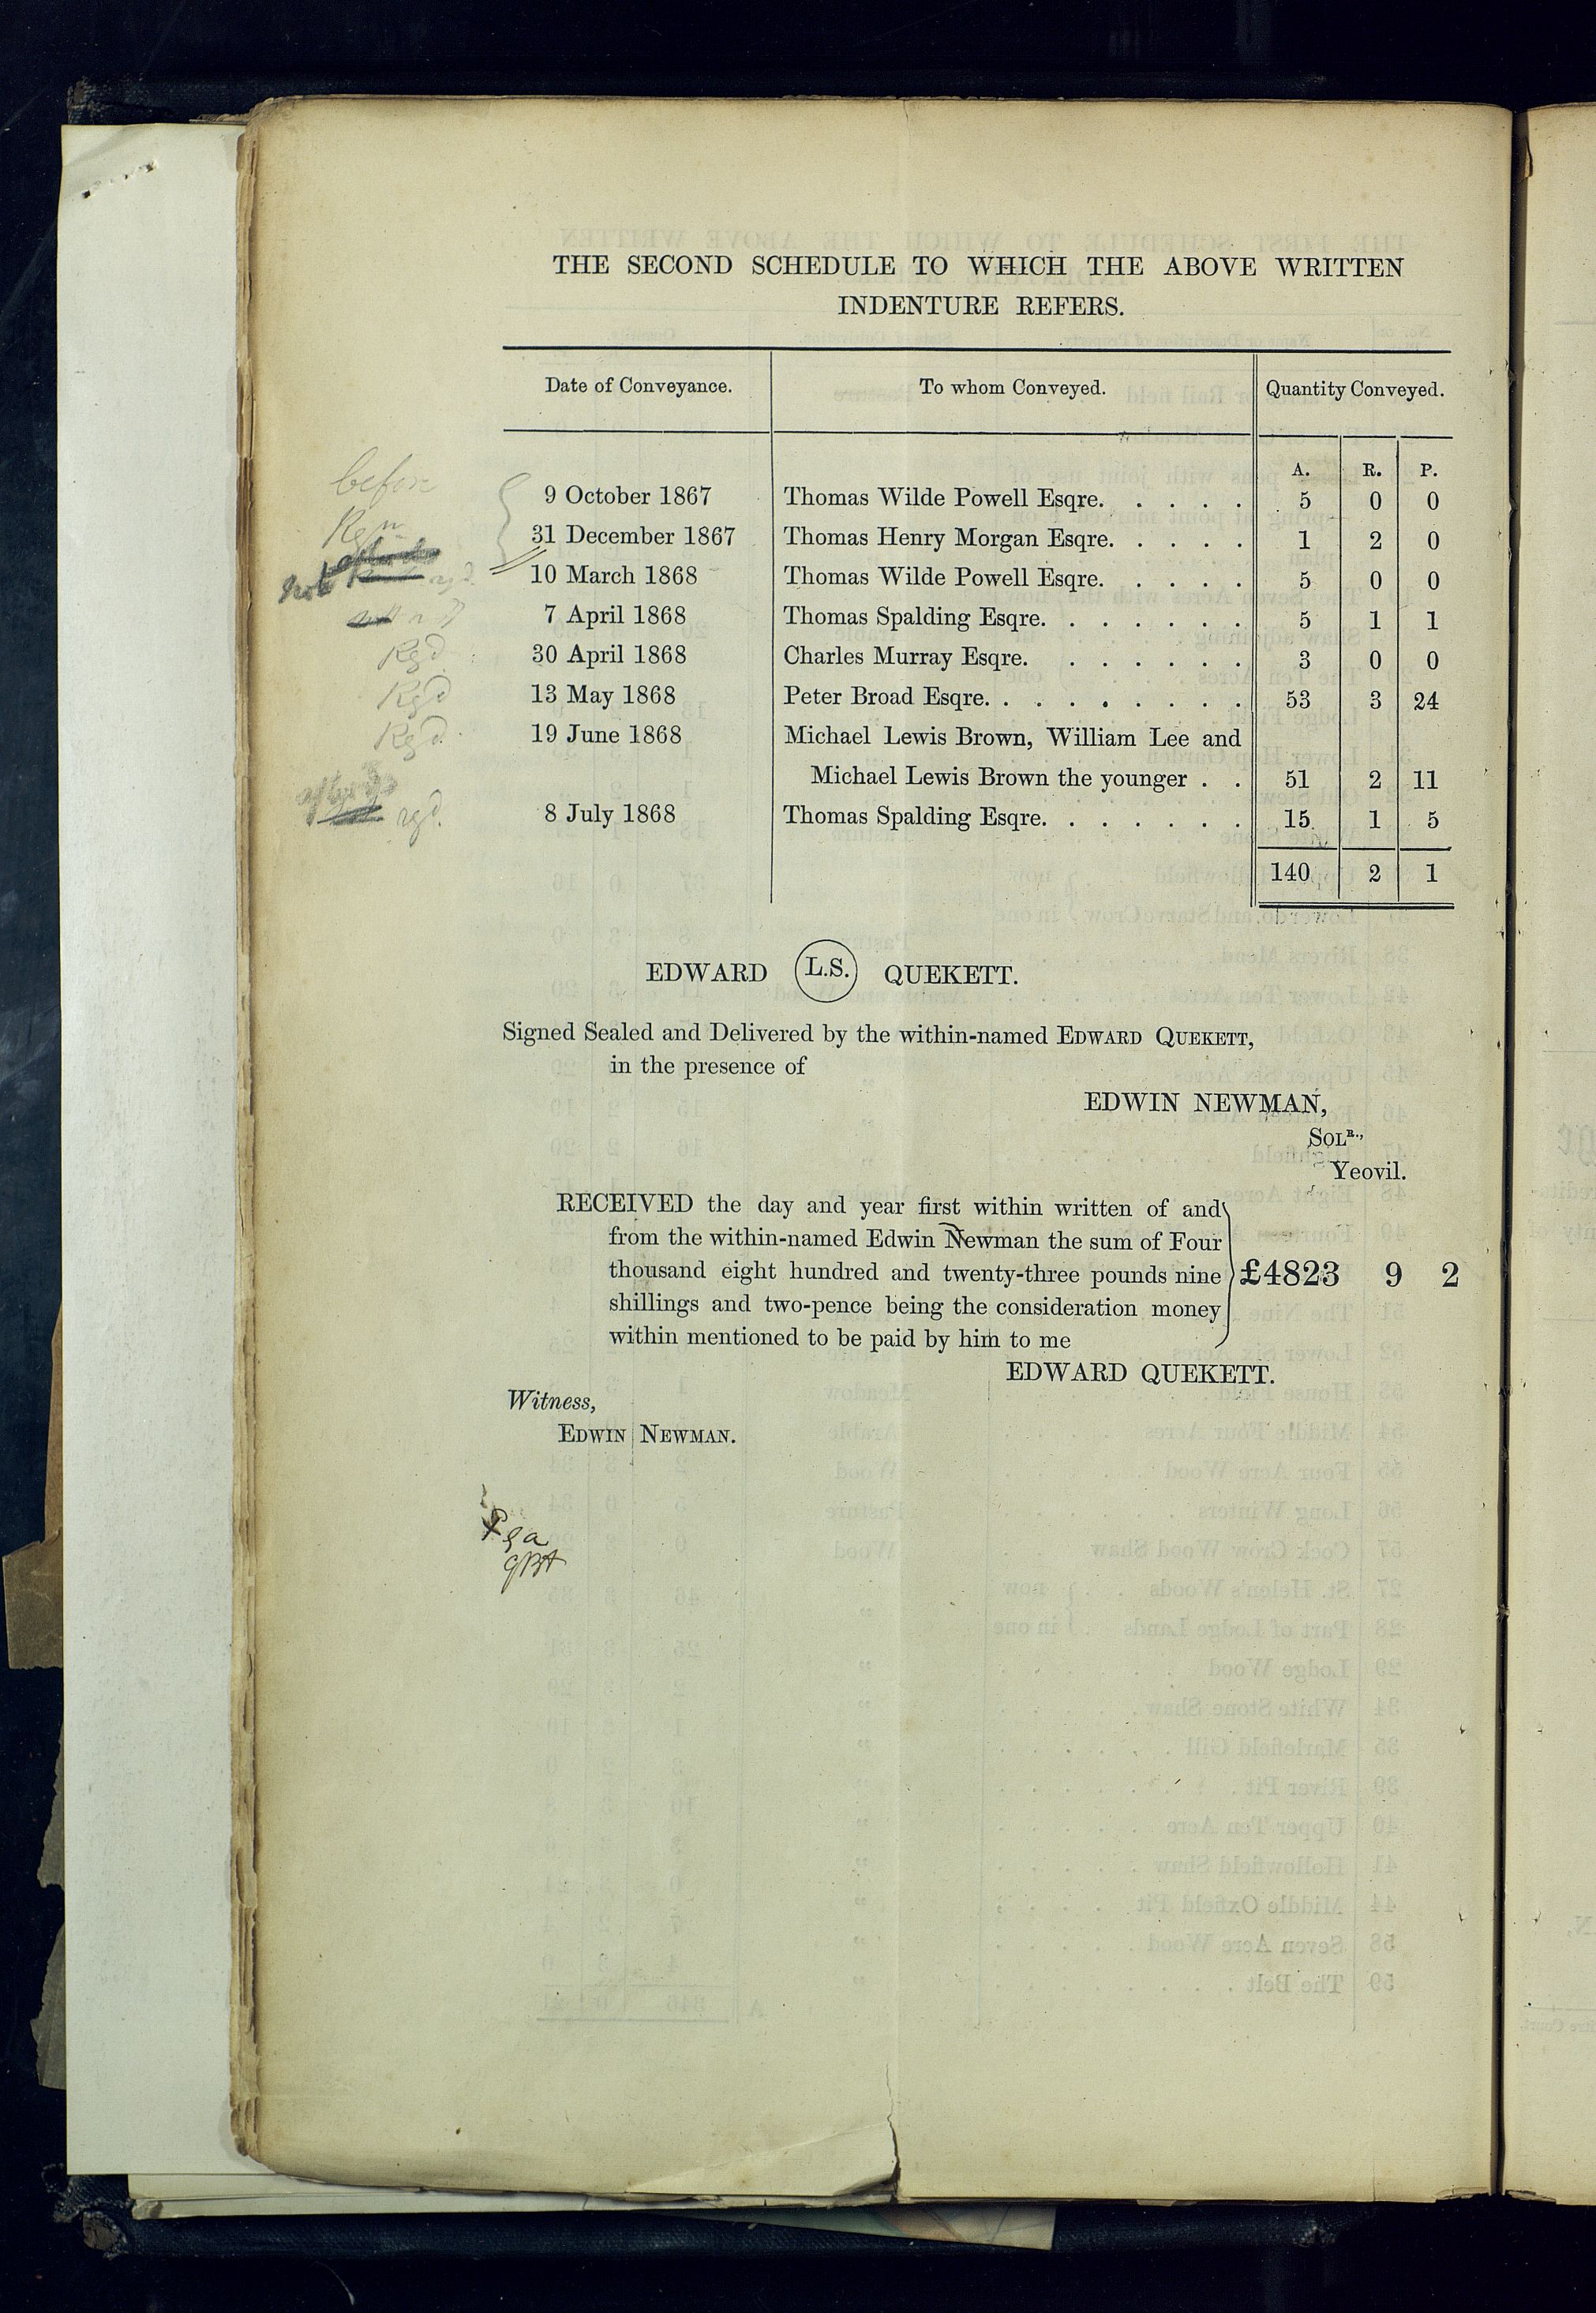 THE SECOND SCHEDULE TO WHICH THE ABOVE WRITTEN
INDENTURE REFERS.
Date of Conveyance. To whom Conveyed. Quantity Conveyed.
A. R. P.
before
9 October 1867 Thomas Wilde Powell Esqre. . . . . 5 0 0
Regn
31 December 1867 Thomas Henry Morgan Esqre. . . . . 1 2 0
not regd.
10 March 1868 Thomas Wilde Powell Esqre. . . . . 5 0 0
7 April 1868 Thomas Spalding Esqre. . . . . . . 5 1 1
Regd 30 April 1868 Charles Murray Esqre. . . . . . . 3 0 0
Regd 13 May 1868 Peter Broad Esqre. . . . . . . . . 53 3 24
Regd. 19 June 1868 Michael Lewis Brown, William Lee and
Michael Lewis Brown the younger . . 51 2 11
regd. 8 July 1868 Thomas Spalding Esqre. . . . . . . 15 1 5
140 2 1
EDWARD L.S. QUEKETT.
Signed Sealed and Delivered by the within-named EDWARD QUEKETT,
in the presence of
EDWIN NEWMAN,
SOLR.,
Yeovil.
RECEIVED the day and year first within written of and
from the within-named Edwin Newman the sum of Four
thousand eight hundred and twenty-three pounds nine £4823 9 2
shillings and two-pence being the consideration money
within mentioned to be paid by him to me
EDWARD QUEKETT.
Witness,
EDWIN NEWMAN.